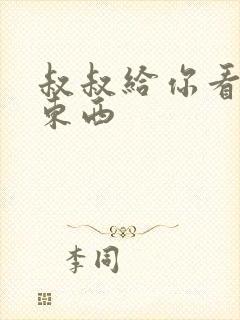 叔叔給你看
東西
李同